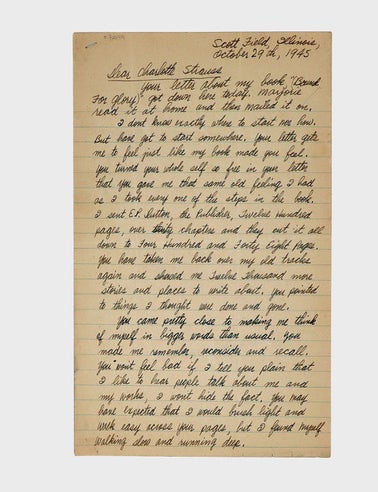 Scott Field, Illinois,
October 29th, 1945
Dear Charlotte Strauss
Your letter about my book "(Bound
For Glory)" got down here today. Marjorie
read it at home and then mailed it on.
I dont know exactly where to start nor how.
But have got to start somewhere. Your letter gets
me to feel just like my book made you feel.
You turned your whole self so free in your letter
that you gave me that same old feeling I had
as I took every one of the steps in the book.
I sent E.P. Dutton, the Publisher, Twelve Hundred
pages, over thirty chapters and they cut it all
down to Four Hundred and Forty Eight Pages.
You have taken me back over my old tracks
again and showed me Twelve Thousand more
stories and places to write about. You pointed
to things I thought were done and gone.
You came pretty close to making me think
of myself in bigger words than usual. You
made me remember, reconsider and recall.
You wont feel bad if I tell you plain that
I like to hear people talk about me and
my works, I wont hide the fact. You may
have expected that I would brush light and
work easy across your pages, but I found myself
walking slow and running deep.